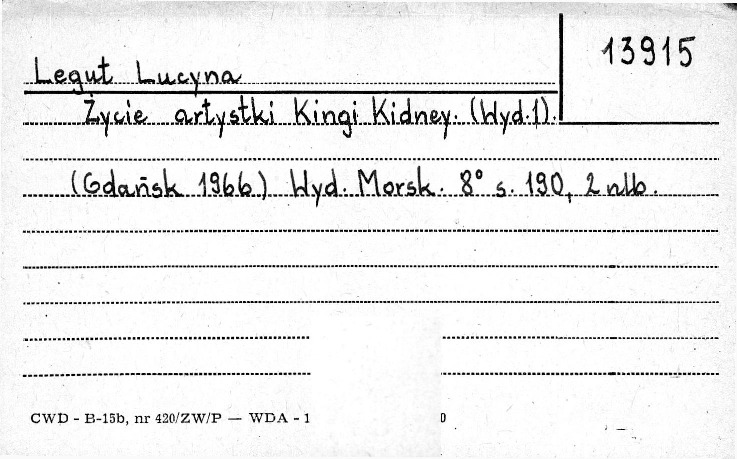 13915
Legut Lucyna
Życie artystki Kingi Kidney. (Wyd. 1).
(Gdańsk 1966) Wyd. Morsk. 8° s. 190, 2 nlb.
CWD - B-15b, nr 420/ZW/P — WDA - 1 0